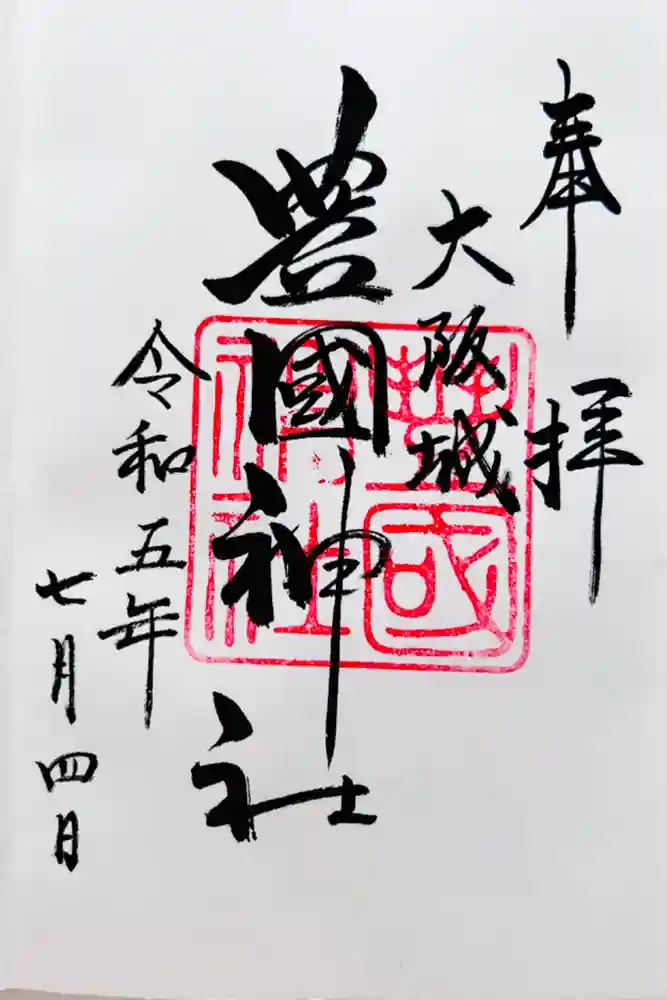 奉拝
大阪城
豊國神社
豊國神社
令和五年
七月四日